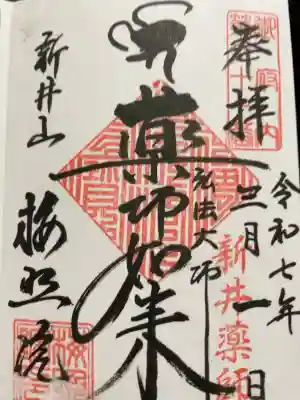 奉拝
令和七年
三月一日
新井薬師
弘法大師
薬师如来
新井山
梅照院